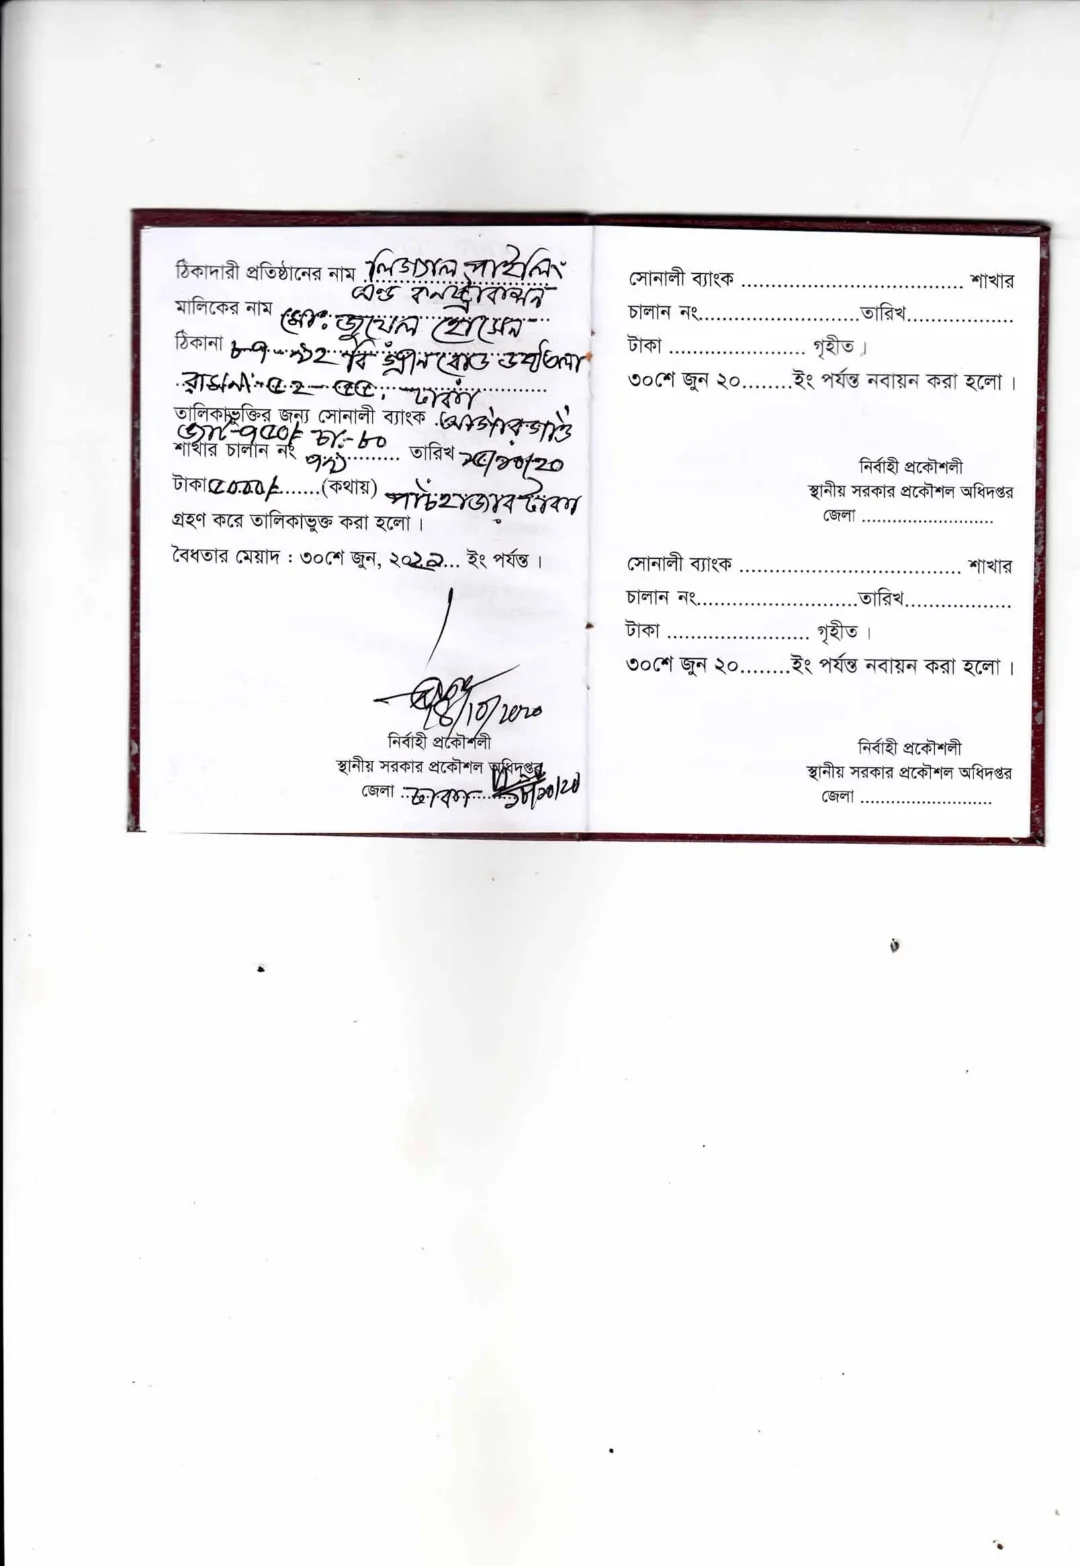 ঠিকাদারী প্রতিষ্ঠানের নাম লিগ্যাল পাইলিং
এন্ড কনস্ট্রাকশন
মালিকের নাম মো: জুয়েল হোসেন
ঠিকানা ৮৭ বি গ্রীন রোড
ঢাকা
তালিকাভুক্তির জন্য সোনালী ব্যাংক আগারগাঁও
শাখার চালান নং তারিখ ১৫/১০/২০
টাকা ৫০০০/-......(কথায়) পাঁচ হাজার টাকা
গ্রহণ করে তালিকাভুক্ত করা হলো।
বৈধতার মেয়াদ : ৩০শে জুন, ২০২১... ইং পর্যন্ত।
নির্বাহী প্রকৌশলী
স্থানীয় সরকার প্রকৌশল অধিদপ্তর
জেলা ..ঢাকা
সোনালী ব্যাংক ...................................... শাখার
চালান নং...........................তারিখ..................
টাকা ....................... গৃহীত।
৩০শে জুন ২০........ইং পর্যন্ত নবায়ন করা হলো।
নির্বাহী প্রকৌশলী
স্থানীয় সরকার প্রকৌশল অধিদপ্তর
জেলা .......................
সোনালী ব্যাংক ...................................... শাখার
চালান নং...........................তারিখ..................
টাকা ........................ গৃহীত।
৩০শে জুন ২০........ইং পর্যন্ত নবায়ন করা হলো।
নির্বাহী প্রকৌশলী
স্থানীয় সরকার প্রকৌশল অধিদপ্তর
জেলা .......................